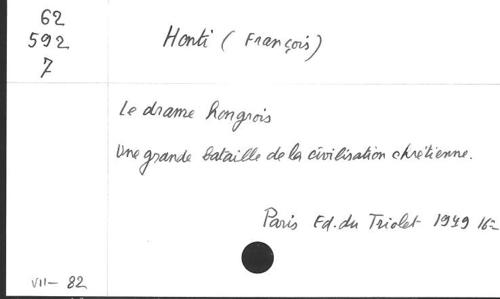 62
592
7
Honti (François)
Le drame hongrois
Une grande bataille de la civilisation chrétienne.
Paris Ed. du Triolet 1949 16=
VII - 82